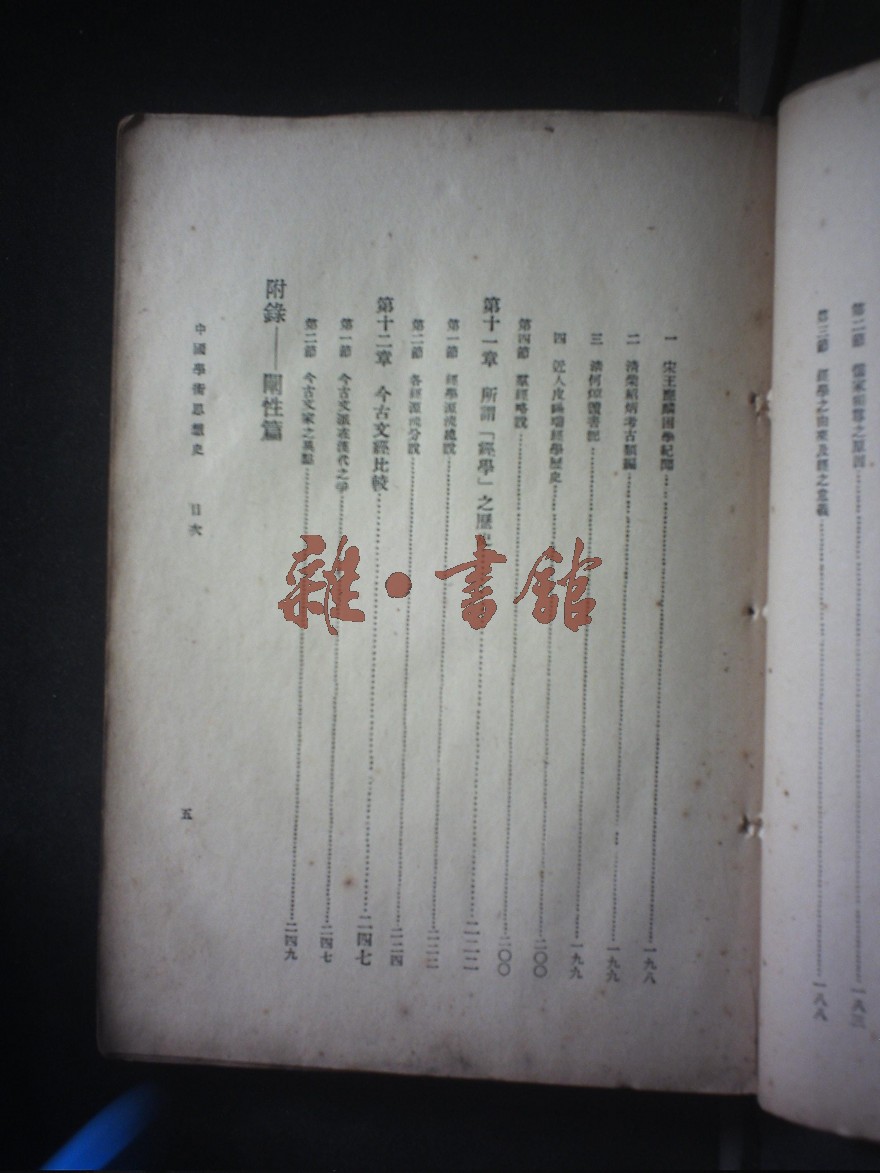 第二節 儒家 之原因 一八三
第三節 經學之由來及經之意義 一八八
一 宋王應麟困學紀聞 一九八
二 清柴紹炳考古類編 一九九
三 清何焯讀書記 一九九
四 近人皮錫瑞經學歷史 二〇〇
第四節 羣經略說 二〇〇
第十一章 所謂「經學」之歷史 二二二
第一節 經學源流總說 二二二
第二節 各經源流分說 二二四
第十二章 今古文經比較 二四七
第一節 今古文派在漢代之爭 二四七
第二節 今古文家之異點 二四九
附錄——闡性篇
中國學術思想史 目次
五
雜·書館